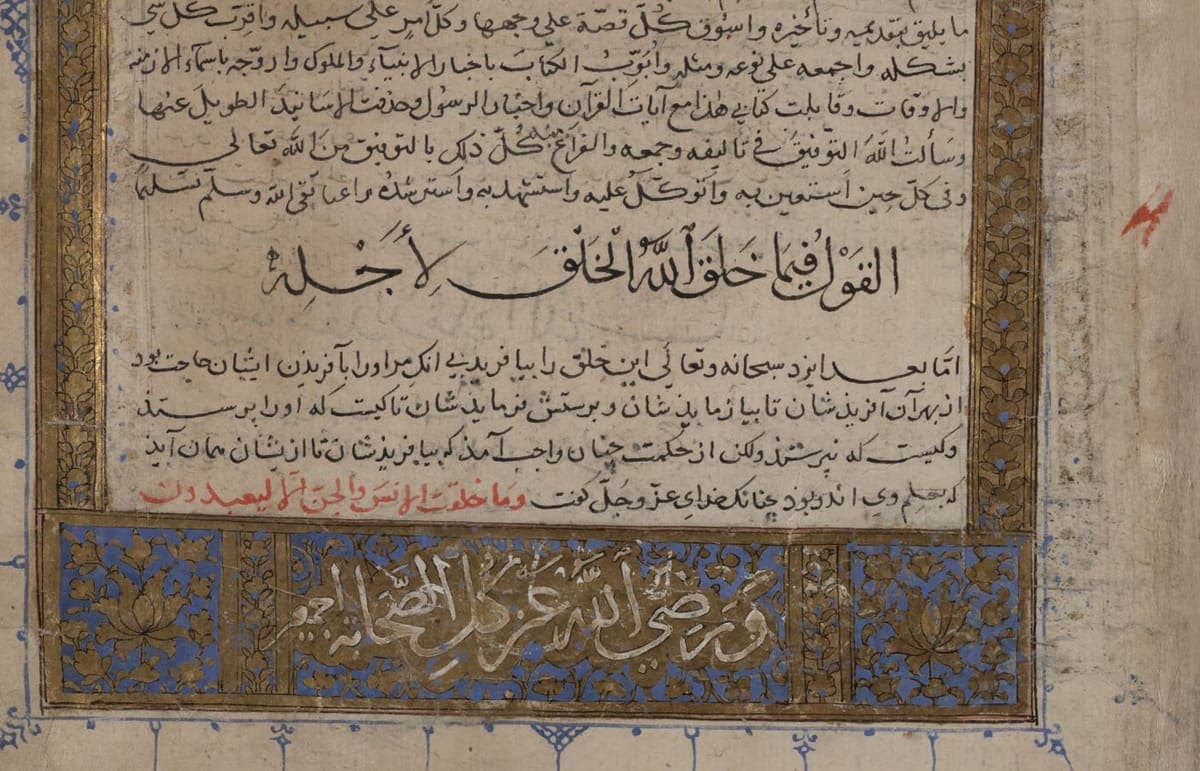 ما يليق بتقديمه وتأخيره واسوق كُلّ قصّة على وجهها وكلّ امرٍ على سبيله واقرِنَ كل شئ
بشكله واجمعه على نوعه ومثله وابوّبُ الكتابَ باخبار الانبيآء والملوك باسماء الازمنه
والاوقات وقابلت كتابى هذا مع آيات القرآن واخبار الرسول وحذفت الاسانيدَ الطويلَ عنها
وسألت اللّٰهَ التوفيقَ فى تاليفه وجمعه والفراغ منه كلّ ذلك بالتوفيق من اللّٰه تعالى
وفى كلّ حين استعين به واتوكّل عليه واستشهد به واسترشده وسلّم تسليما
القَوْلُ فِيمَا خَلَقَ ٱللَّهُ الْخَلْقَ لِأَجْلِهِ
امّا بعد ايزد سبحانه وتعالى اين خلق را بيافريد بى انك مر اورا بآفريذن ايشان حاجت بود
از بهر آن آفريذشان تا بيازمايذشان وبرستش فرمايذشان تا كيست كه اورا برستد
وكيست كه نبرستذ ولكن از حكمت چنان واجب آمذ كه بيافريذشان تا ازيشان همان آيذ
كه بعلم وى اندر بوذ چنانك خداى عزّ وجلّ كفت وما خلقت الانس والجنّ الا ليعبدون
وَرَضِيَ ٱللَّهُ عَنْ كُلِّ الصَّحَابَةِ اجمعين